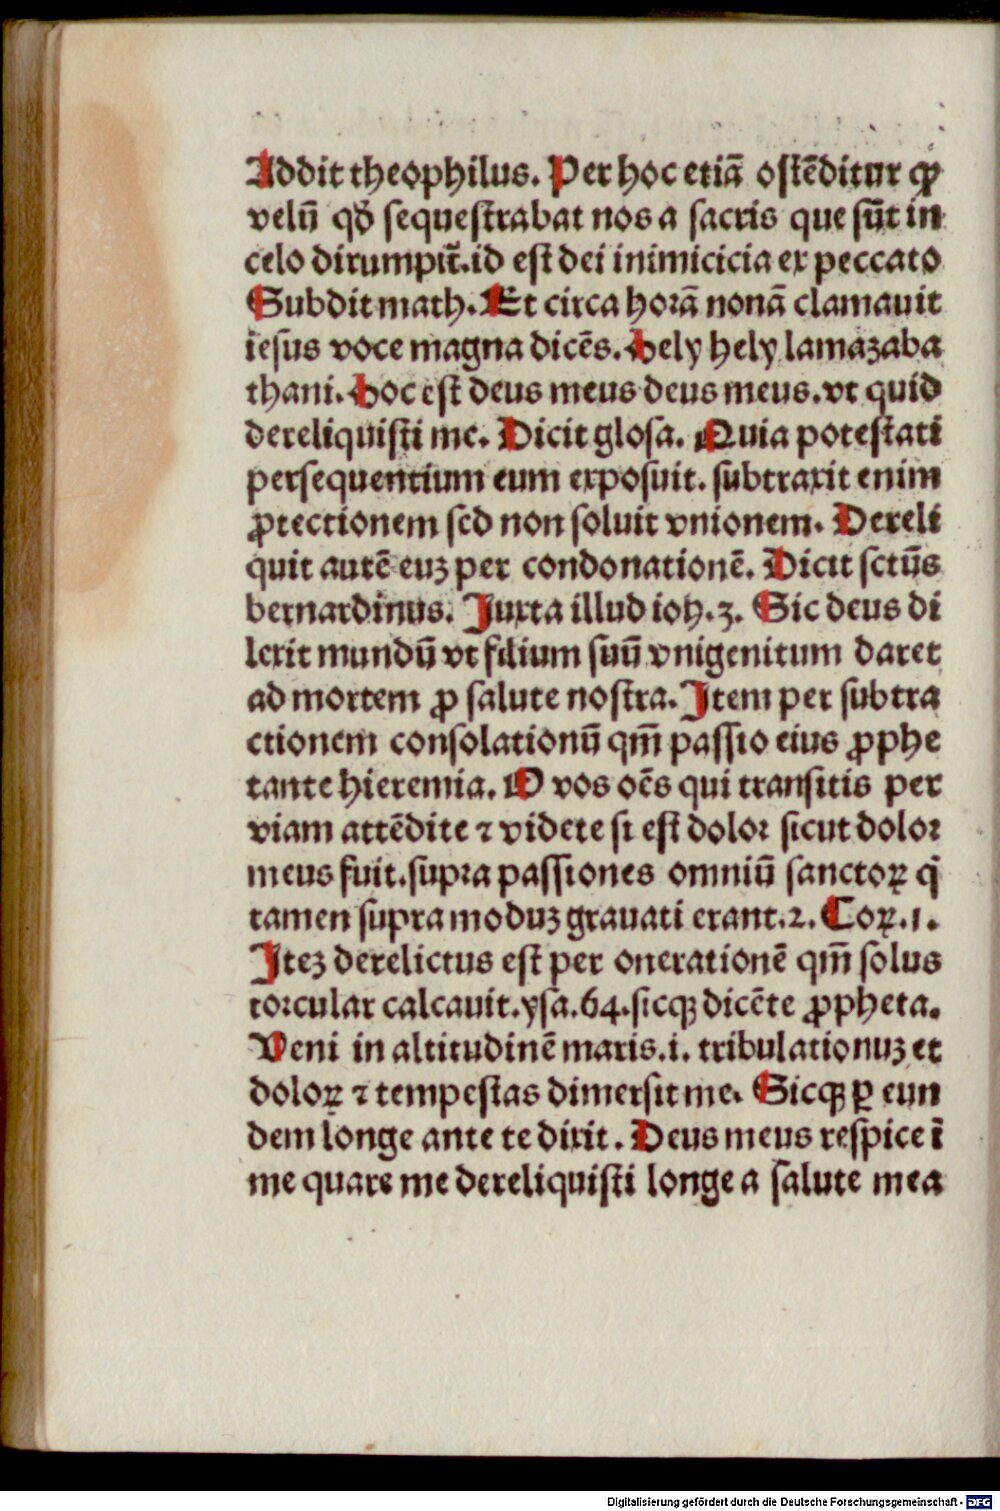 Addit theophilus. Per hoc etiā oſtēditur ꝙ
velū qď ſequeſtrabat nos a ſacris que ſūt in
celo dirumpit̄. id eſt dei inimicicia ex peccato
Subdit math. Et circa horā nonā clamauit
ieſus voce magna dicēs. hely hely lamazaba
thani. hoc eſt deus meus deus meus. vt quid
dereliquiſti me. Dicit gloſa. Quia poteſtati
perſequentium eum expoſuit. ſubtraxit enim
ꝓtectionem ſed non ſoluit vnionem. Dereli
quit autē euꝫ per condonationē. Dicit ſctūs
bernardinus. Juxta illud ioh. 3. Sic deus di
lexit mundū vt filium ſuū vnigenitum daret
ad mortem ꝓ ſalute noſtra. Item per ſubtra
ctionem conſolationū qm̄ paſſio eius ꝓphe
tante hieremia. O vos oēs qui tranſitis per
viam attēdite ⁊ videte ſi eſt dolor ſicut dolor
meus fuit. ſupra paſſiones omniū ſanctoꝝ q̇
tamen ſupra moduꝫ grauati erant. 2. Coꝝ. 1.
Iteꝫ derelictus eſt per onerationē qm̄ ſolus
torcular calcauit. yſa. 64. ſicqꝫ dicēte ꝓpheta.
Veni in altitudinē maris. i. tribulationuꝫ et
doloꝝ ⁊ tempeſtas dimerſit me. Sicqꝫ ꝑ eun
dem longe ante te dixit. Deus meus reſpice ī
me quare me dereliquiſti longe a ſalute mea
Digitalisierung gefördert durch die Deutsche Forschungsgemeinschaft - DFG